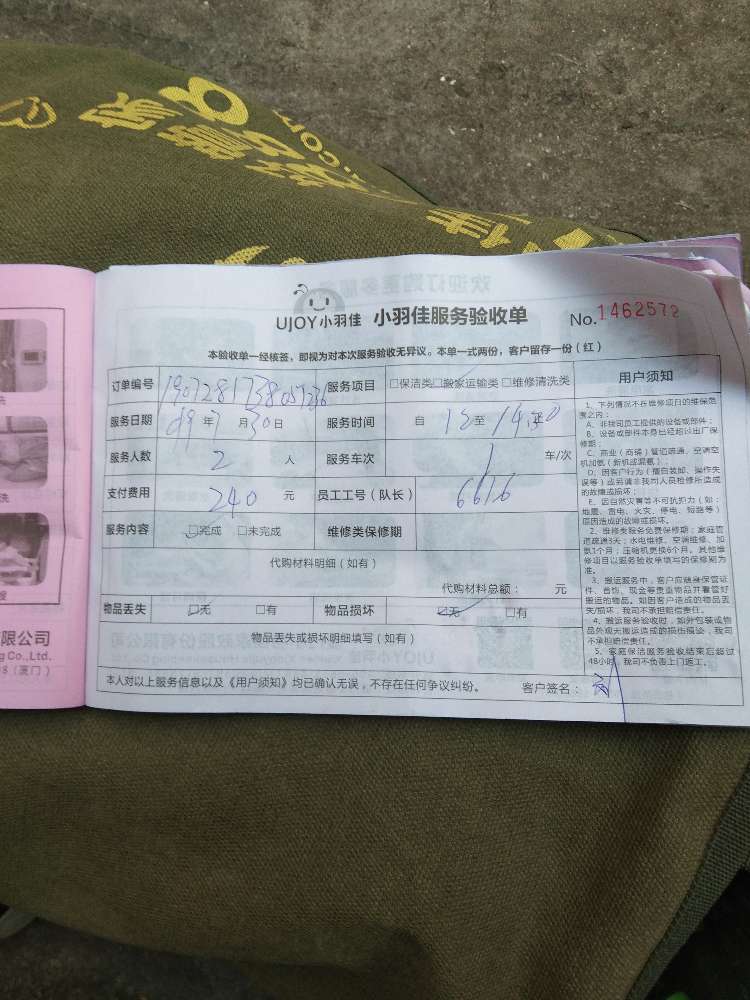 管家
.COM
欢迎订购更多服
UJOY小羽佳 小羽佳服务验收单 No.1462572
本验收单一经核签，即视为对本次服务验收无异议。本单一式两份，客户留存一份（红）
订单编号 服务项目 □保洁类□搬家运输类 □维修清洗类 用户须知
服务日期 19年7月30日 服务时间 自 12 至 14:30
服务人数 2 人 服务车次 1 车/次
支付费用 240 元 员工工号（队长） 6616
服务内容 □完成 □未完成 维修类保修期
代购材料明细（如有）
代购材料总额： 元
物品丢失 □无 □有 物品损坏 □无 □有
物品丢失或损坏明细填写（如有）
本人对以上服务信息以及《用户须知》均已确认无误，不存在任何争议纠纷。 客户签名：
1、下列情况不在维修项目的维保范
围之内：
A、非我司员工提供的设备或部件；
B、设备或部件本身已经超过出厂保
修期；
C、商业（商铺）管道疏通、空调空
机加氨（新机或漏氨）；
D、因客户行为（擅自装卸、操作失
误等）或另请非我司人员检修所造成
的故障或损坏；
E、因自然灾害等不可抗拒力（如：
地震、雷电、火灾、停电、短路等）
原因造成的故障或损坏。
2、维修类服务免费保修期：家庭管
道疏通3天；水电维修、空调维修、加
氨1个月；压缩机更换6个月。其他维
修项目以服务验收单填写的保修期为
准。
3、搬运服务中，客户应随身保管证
件、首饰、现金等贵重物品并看管好
搬运的物品。如因客户造成的物品丢
失/损坏，我司不承担赔偿责任。
4、搬运服务验收时，如外包装或物
品外观无搬运造成的损伤痕迹，我司
不承担赔偿责任。
5、家庭保洁服务验收结束后超过
48小时，我司不负责上门施工。
限公司
g Co.,Ltd.
8（厦门）